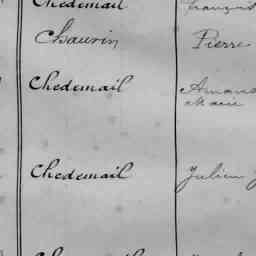 Chedemail François
Chauvin Pierre
Chedemail Amand
Marie
Chedemail Julien